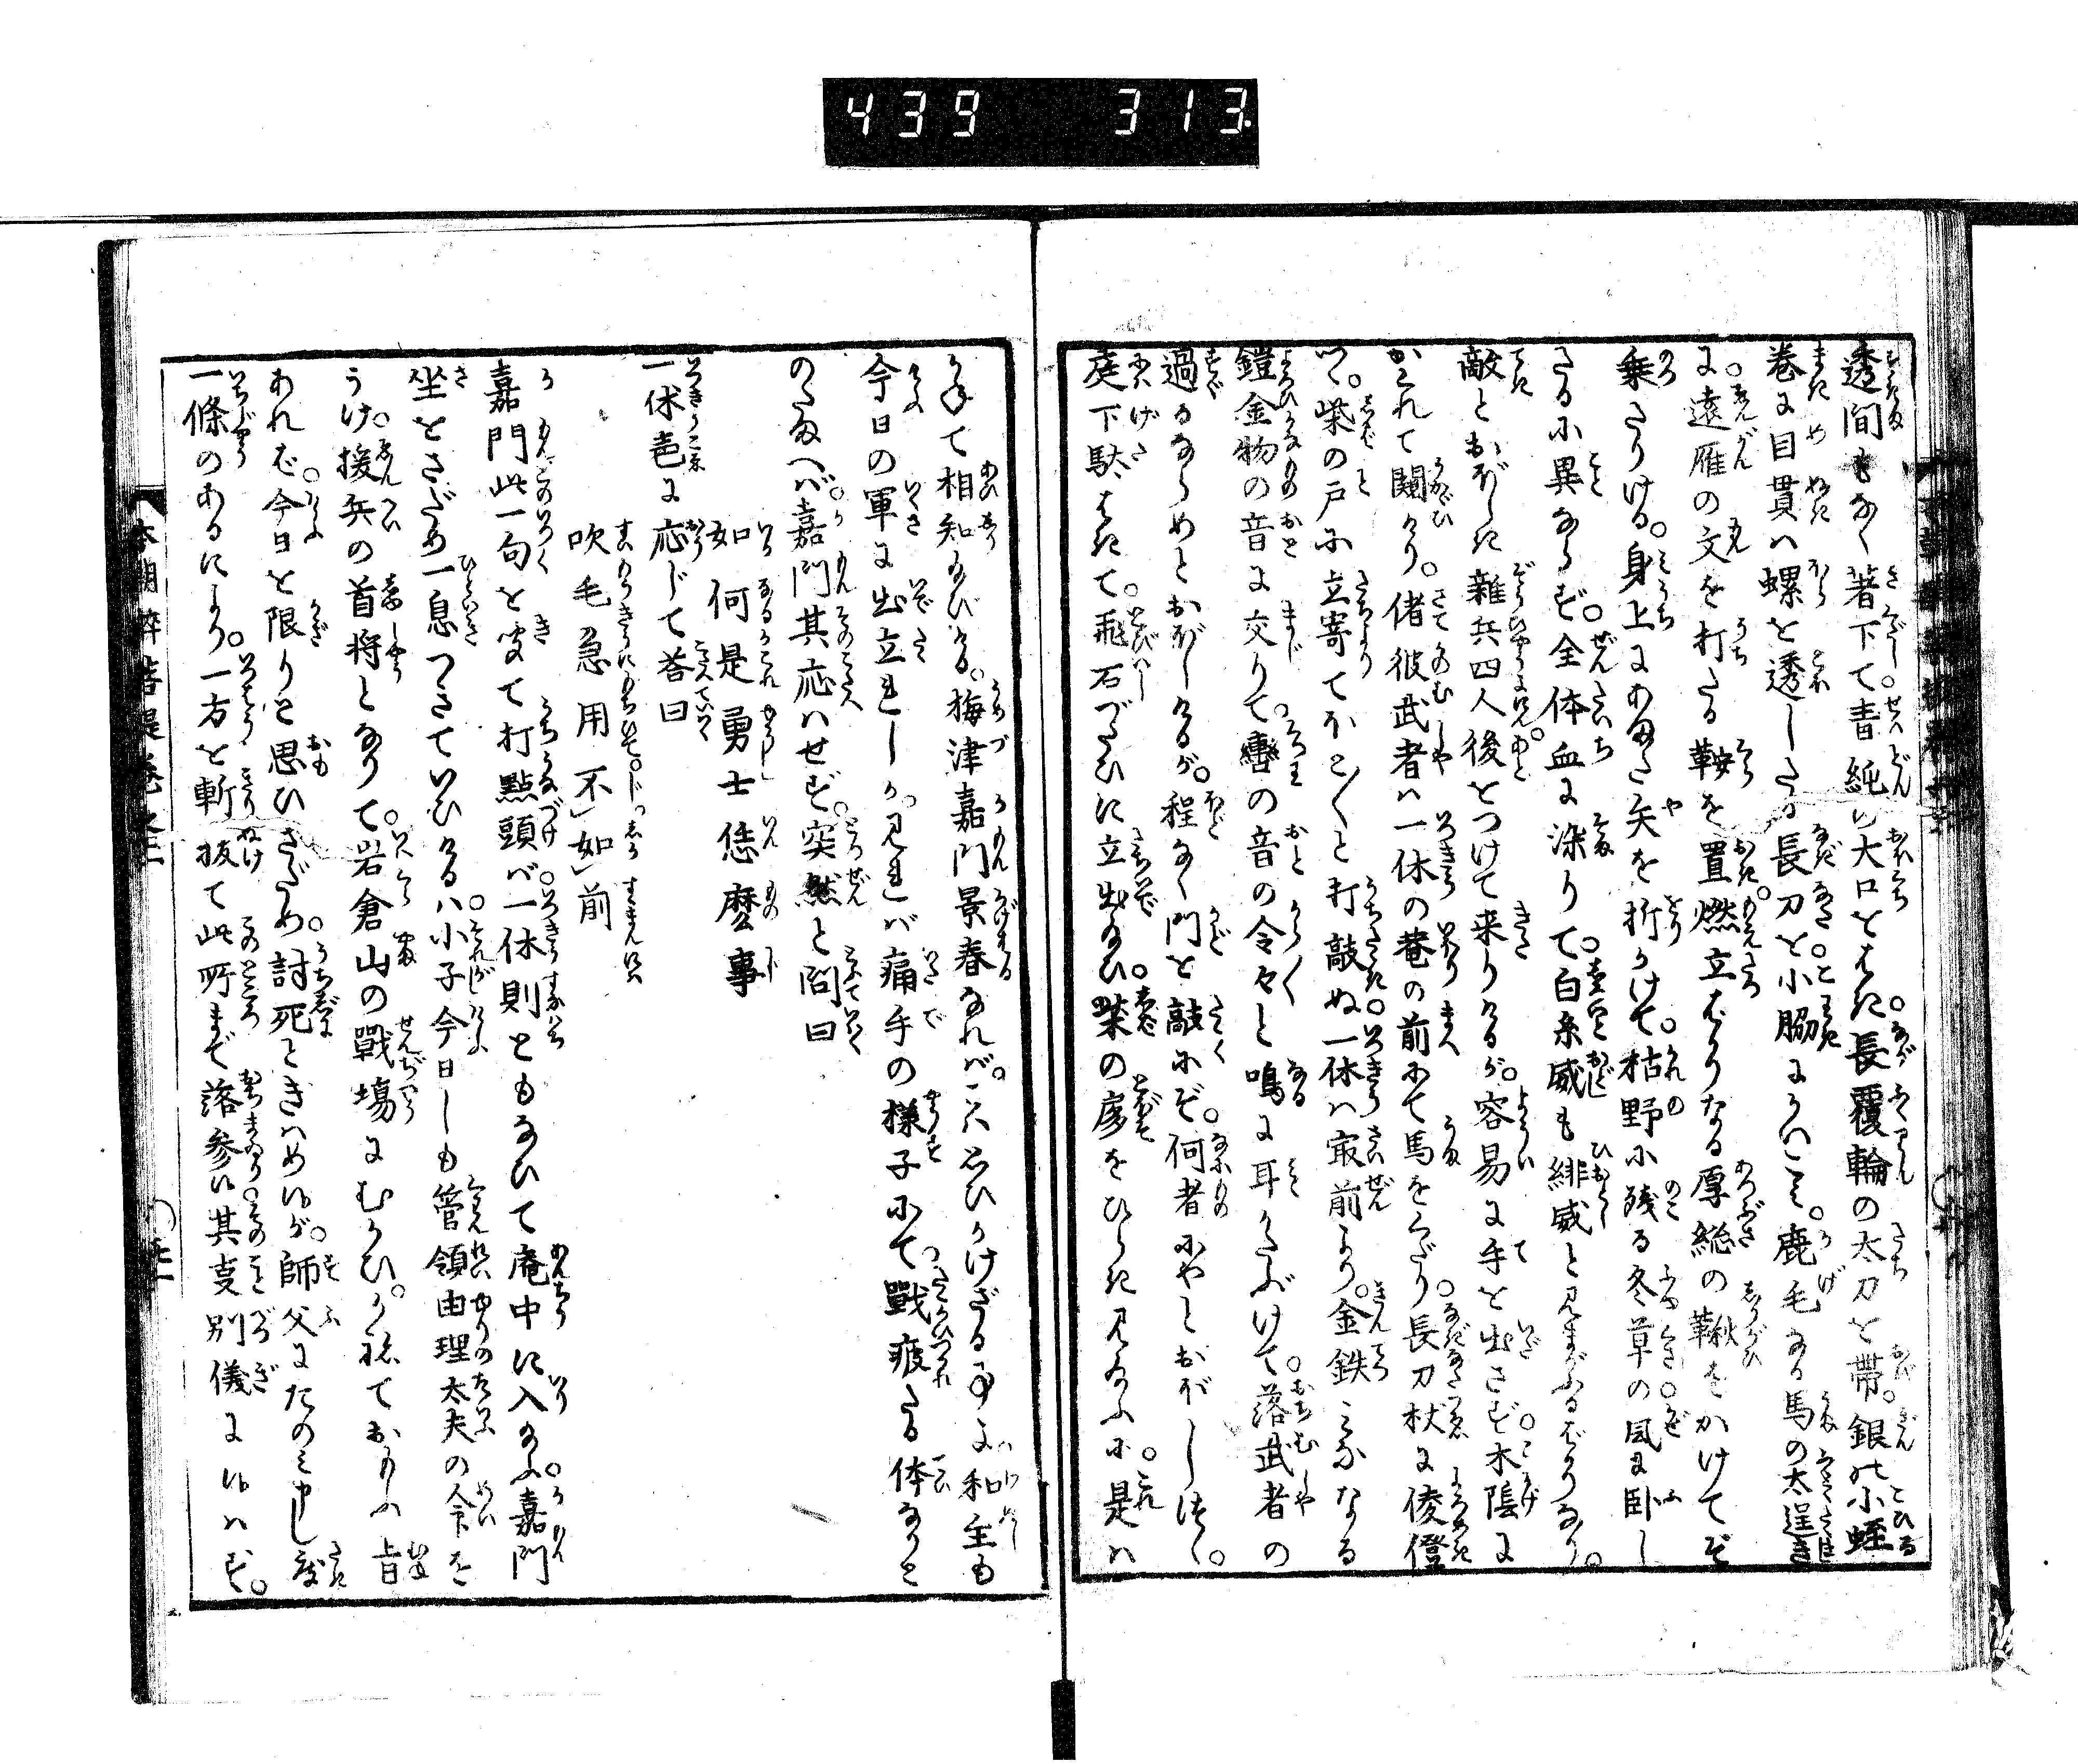 439 313
透間もなく著下て青純の大口をはき長覆輪の太刀を帯。銀の小蛭
巻に目貫は螺を透したる長刀を小脇にかいこみ。鹿毛なる馬の太逞き
に遠雁の文を打たる鞍を置。燃立ばかりなる厚総の鞦をかけてぞ
乗たりける。身上にあまた矢を折かけて。枯野に残る冬草の風に臥し
たるに異ならず。全体血に染りて。白糸威も緋威と見まがふばかりなり。
敵とおぼしき雑兵四人後をつけて来りけるが。容易に手を出さず。木陰に
かくれて闘けり。偖彼武者は一休の菴の前にて馬をくだり。長刀杖に倰僜
つゝ。柴の戸に立寄てほと〱と打敲ぬ一休は最前より。金鉄みななる
鎧金物の音に交りて。轡の音の令々と鳴に耳かたぶけて。落武者の
過るならめとおぼしけるが。程なく門を敲にぞ。何者にやとおぼしつゝ。
庭下駄はきて。飛石づたひに立出給ひ。柴の扉をひらき見給ふに。是は
かねて相知給びける。梅津嘉門景春なれば。こは思ひかけざる事よ和主も
今日の軍に出立れしか。見れば痛手の様子にて。戦疲たる体なりと
のたまへば。嘉門其応はせず。突然と問曰
如何是勇士恁麼事
一休声に応じて答曰
吹毛急用不如前
嘉門此一句を聞て打點頭ば。一休則ともなひて庵中に入給ふ。嘉門
坐をさだめ一息つきていひけるは。小子今日しも管領由理太夫の命を
うけ。援兵の首将となりて。岩倉山の戰場にむかひ。かねておもふ旨
あれば。今日を限りと思ひさだめ。討死ときはめ候が。師父にたのみ申し度
一條のあるにより。一方を斬抜て此所まで落参候其㕝別儀に候はず。
本朝酔菩提巻之二